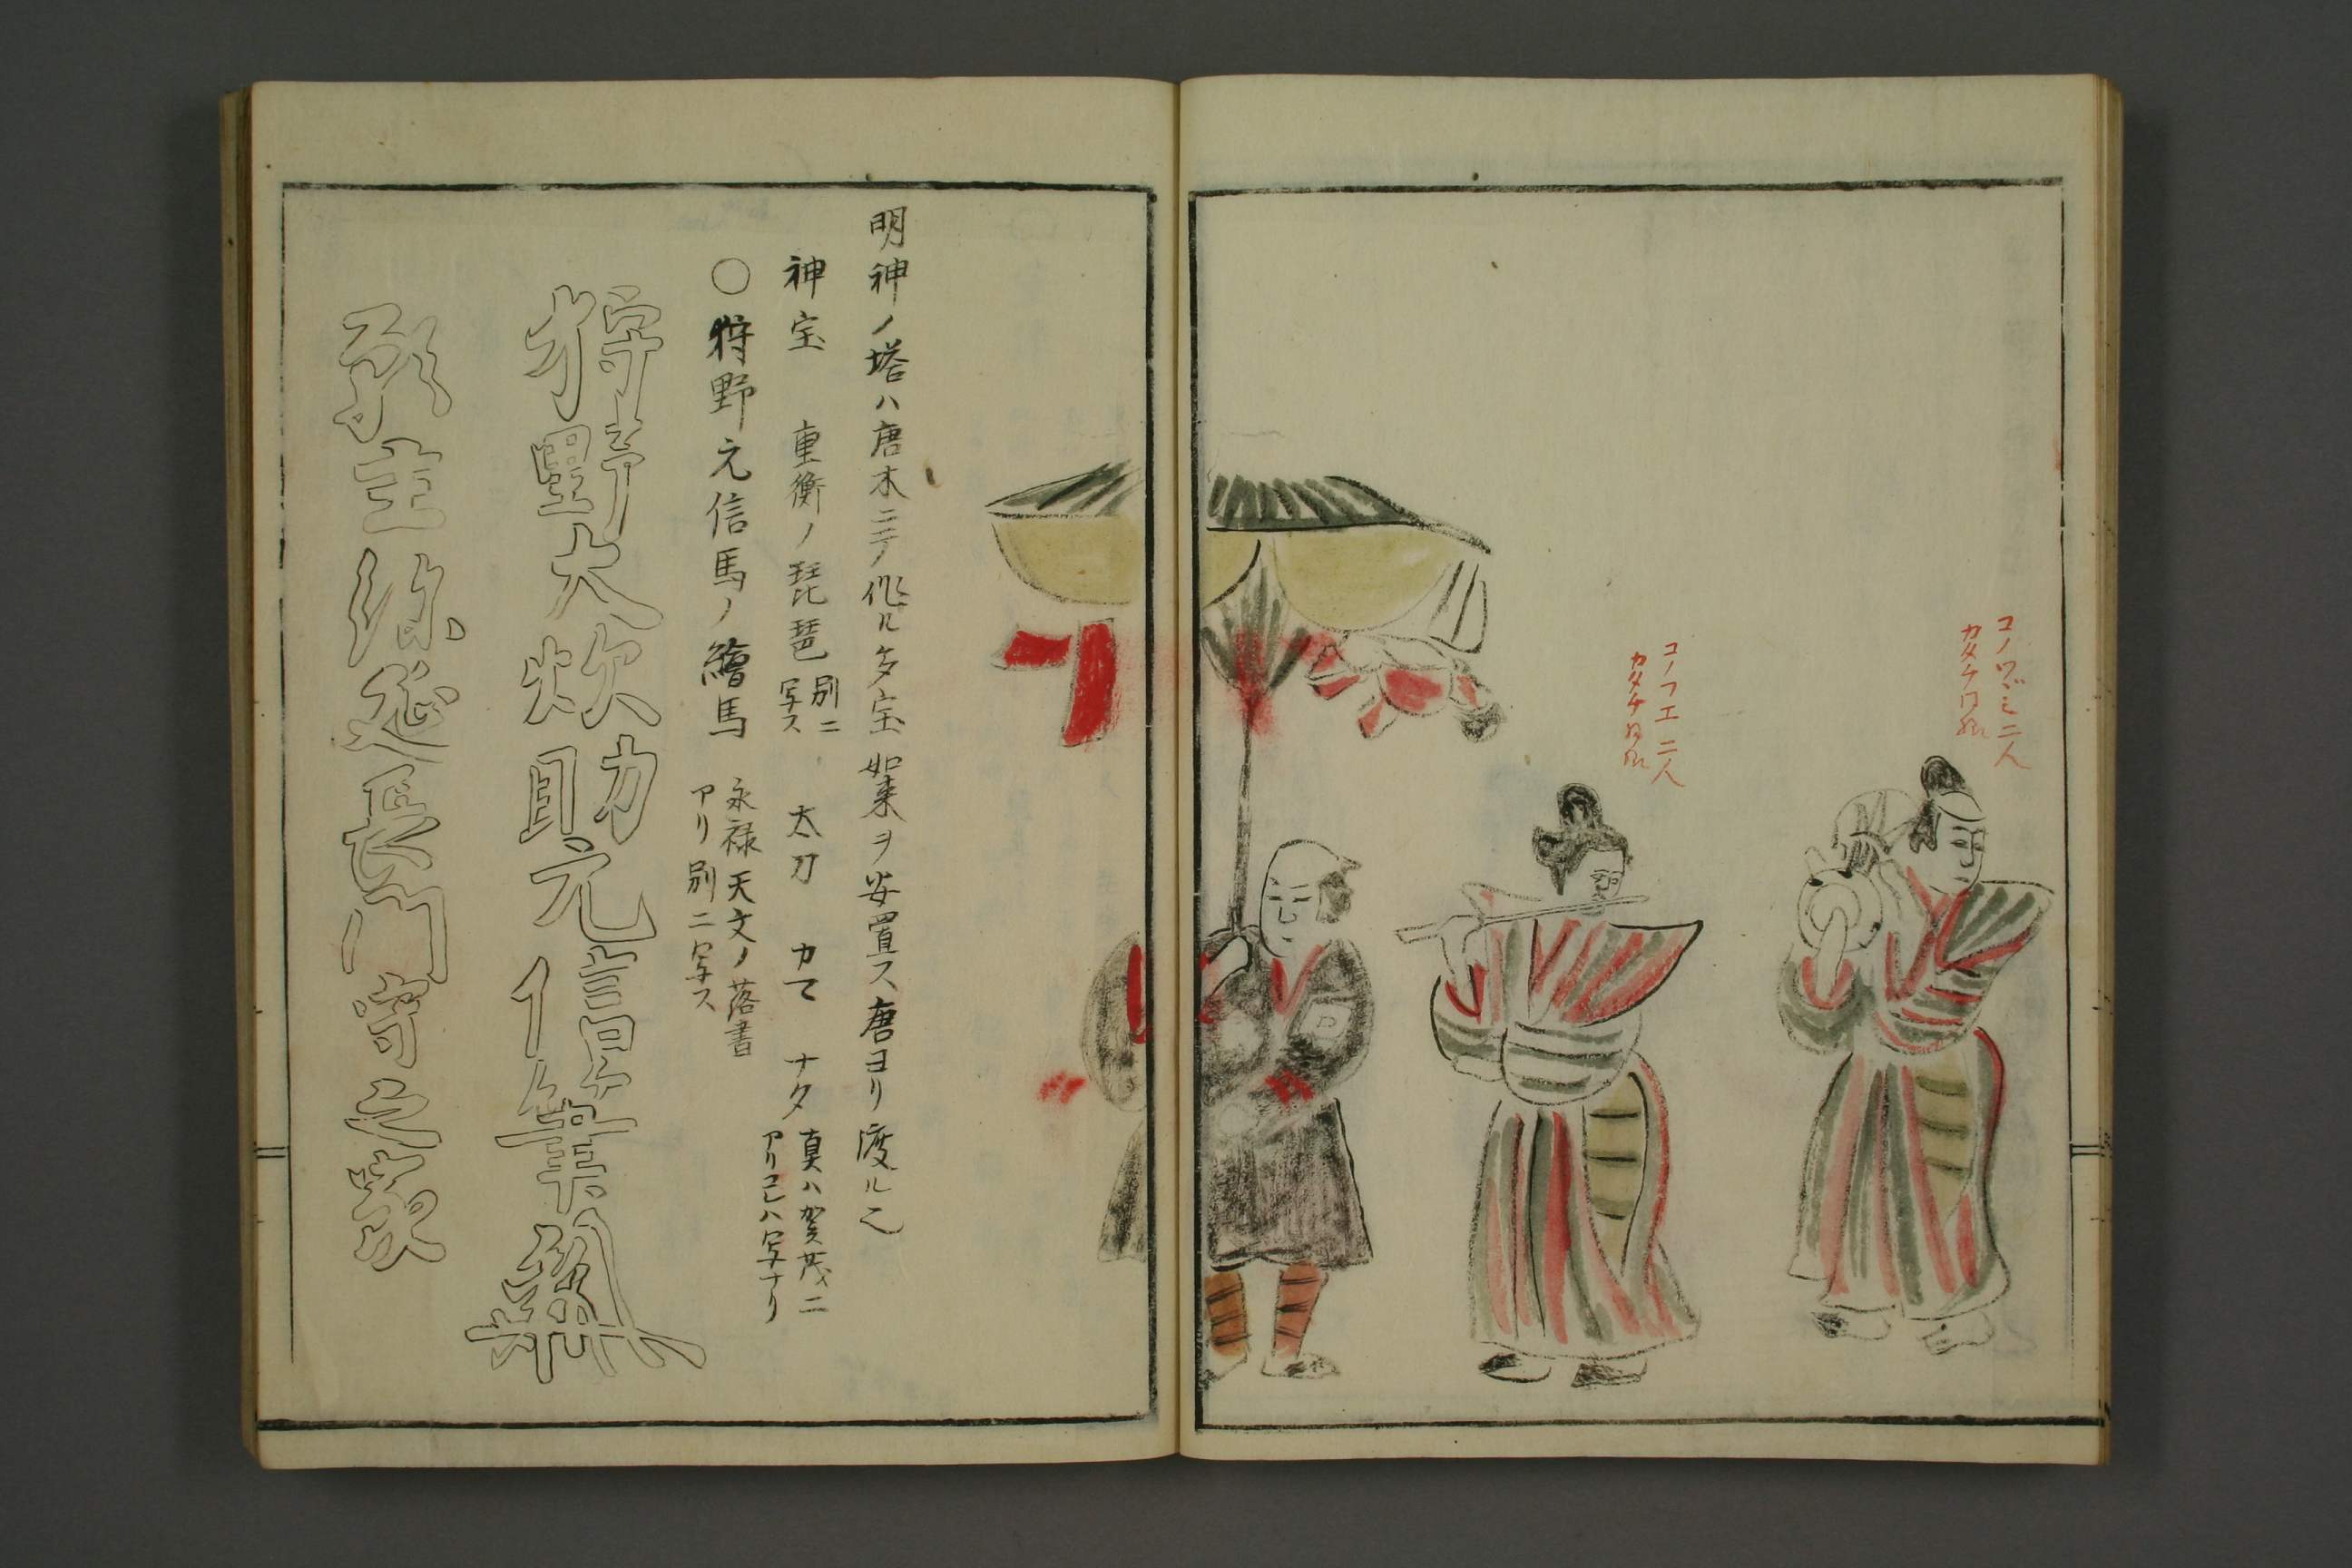 コノツヾミ二人
カタチ同
コノフエ二人
カタチ同
明神ノ塔ハ唐木ニテ作ル多宝如来ヲ安置ス唐ヨリ渡ル之
神宝 重衡ノ琵琶 別ニ写ス 太刀 カマ ナタ 真ハ賀茂ニアリコレハ写ナリ
〇狩野元信馬ノ繪馬 永禄天文ノ落書アリ別ニ写ス
狩野大炊助元信筆
願主 延長門守之家